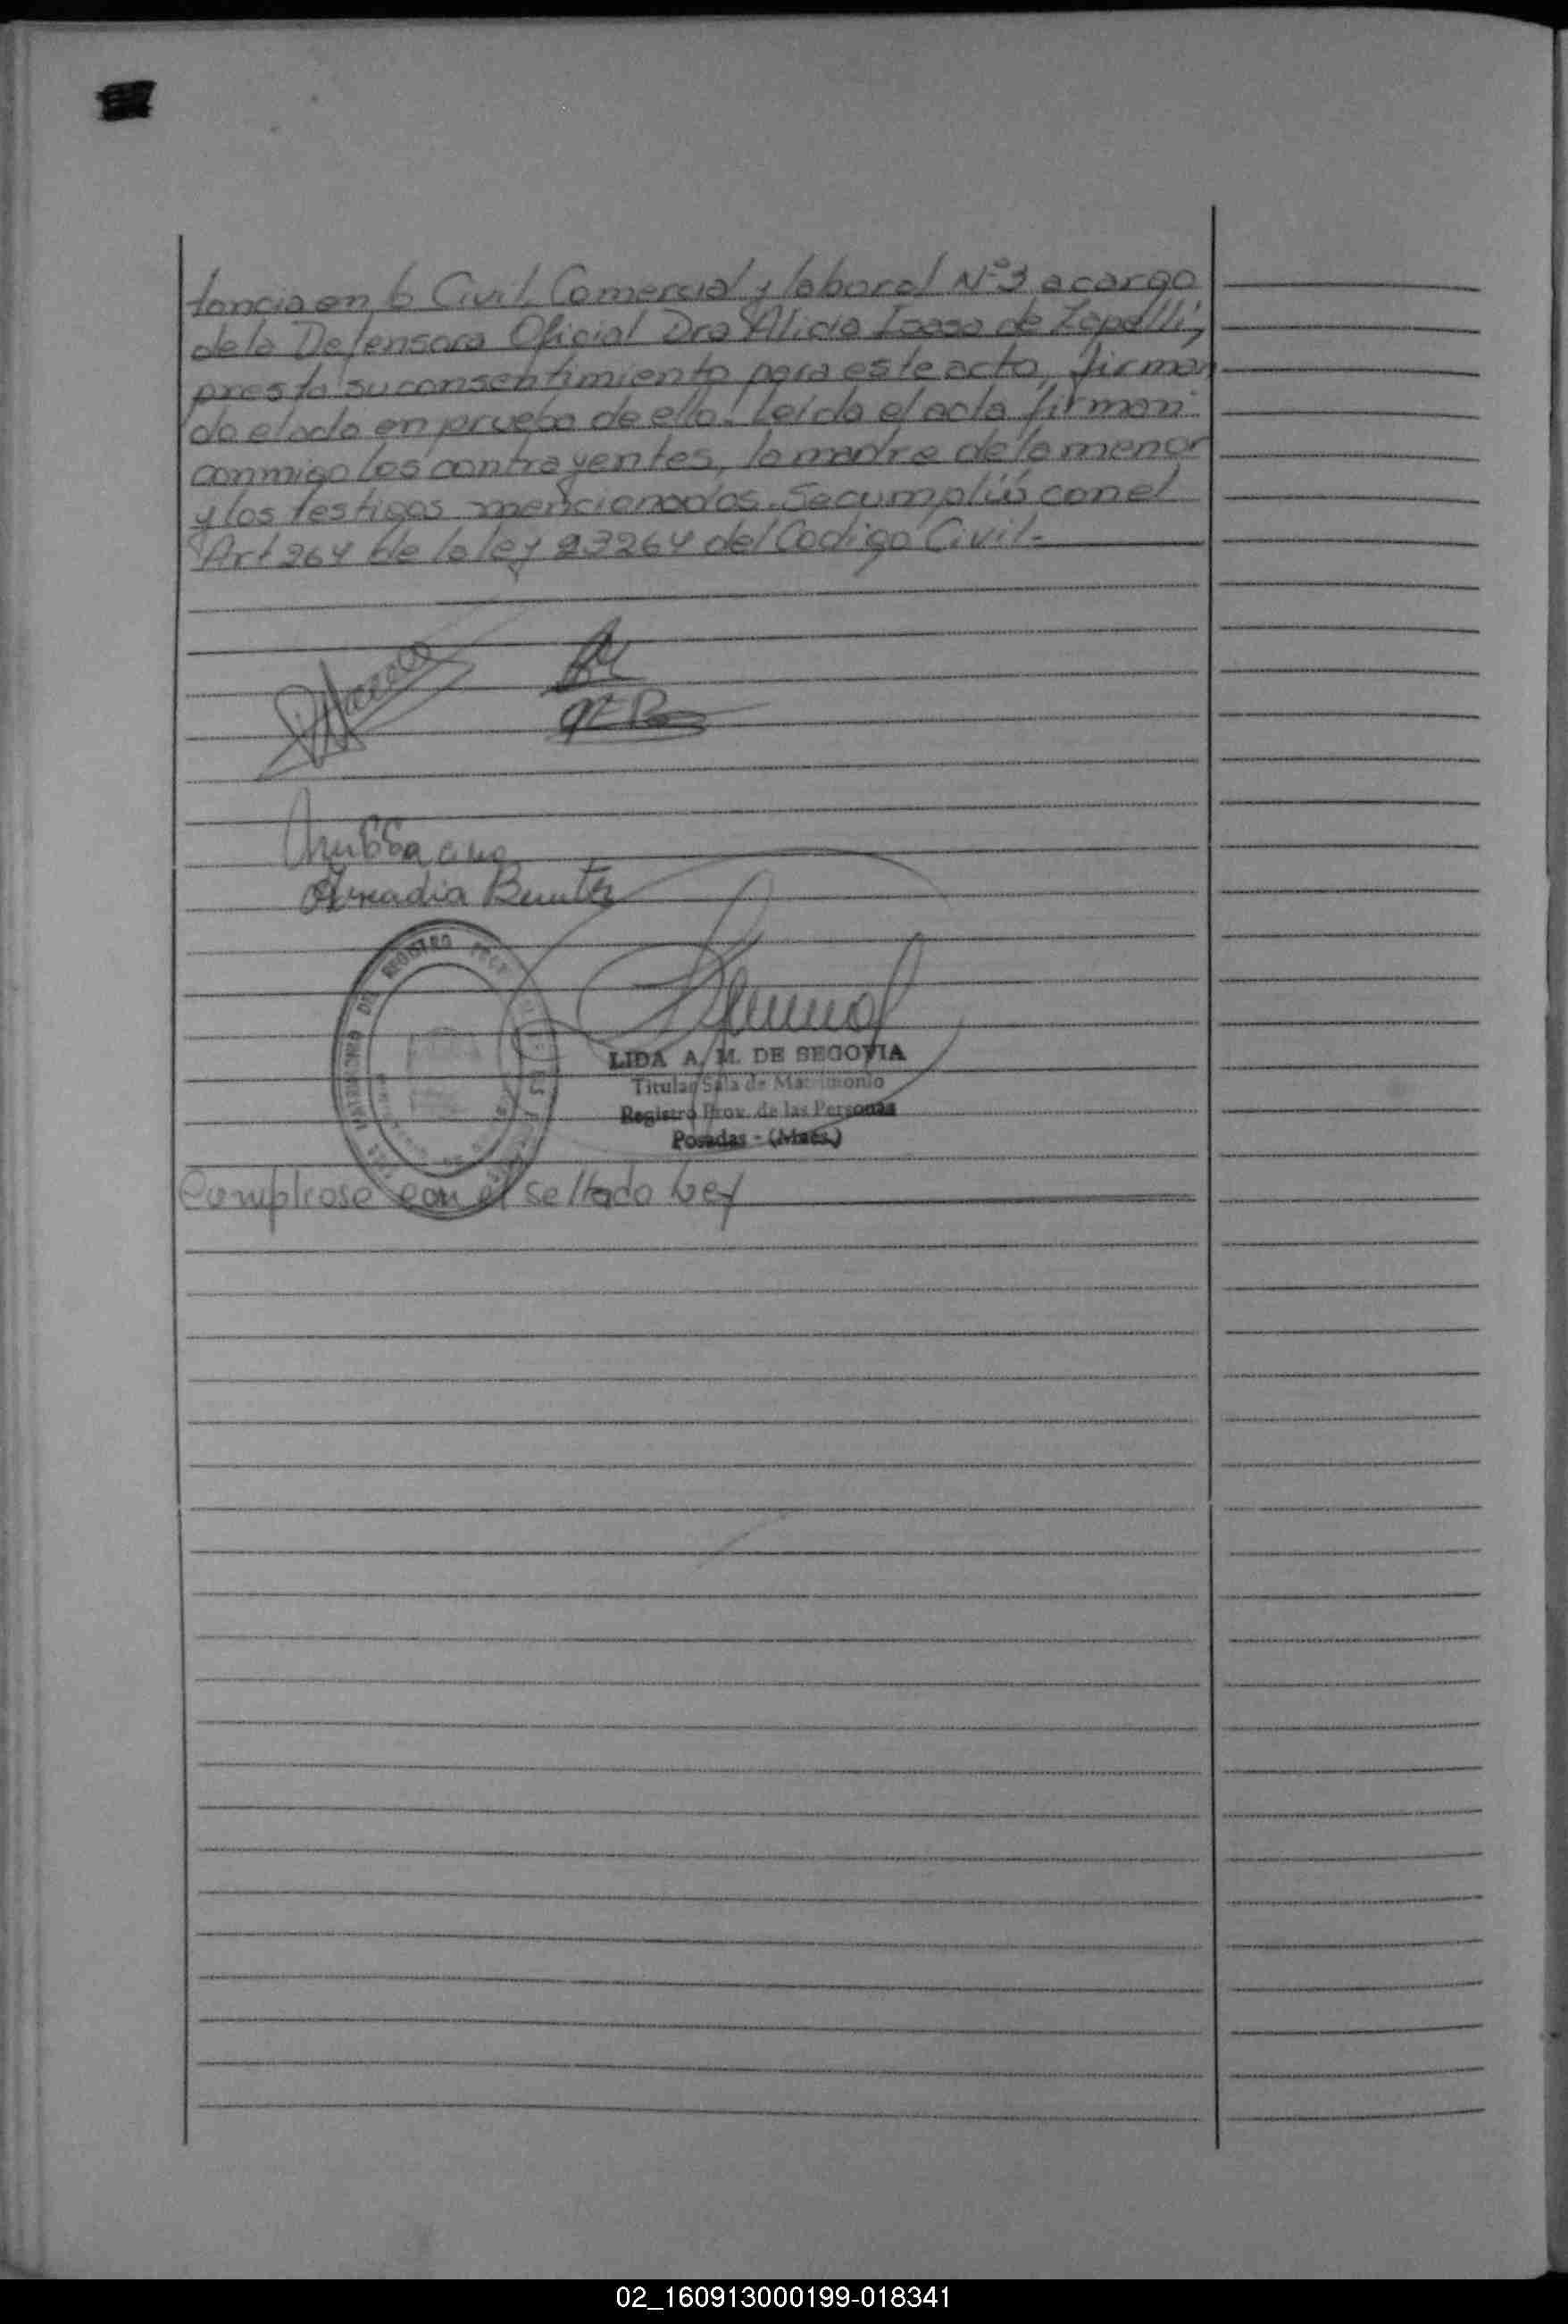 tancia en lo Civil Comercial y laboral Nº3 a cargo
de la Defensora Oficial Dra Alicia de Zapelli,
presta su consentimiento para este acto, firman
do el acta en prueba de ello. Leida el acta firman
conmigo los contrayentes, la madre de la menor
y los testigos mencionados. Se cumplió con el
Art 264 de la ley 23264 del Codigo Civil.-
Benitez
REGISTRO
LIDA A. M. DE SEGOVIA
Titular Sala de Matrimonio
Registro Prov. de las Personas
Posadas - (Mnes.)
Cumplrose con el sellado Ley
02_160913000199-018341